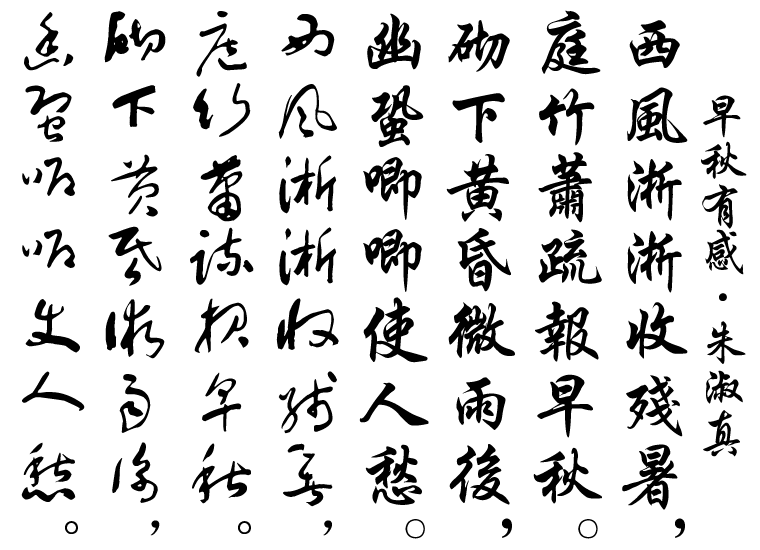 早秋有感·朱淑真
西風淅淅收殘暑，
庭竹蕭疏報早秋。
砌下黃昏微雨後，
幽蛩唧唧使人愁。
西風淅淅收殘暑，
庭竹蕭疏報早秋。
砌下黃昏微雨後，
幽蛩唧唧使人愁。